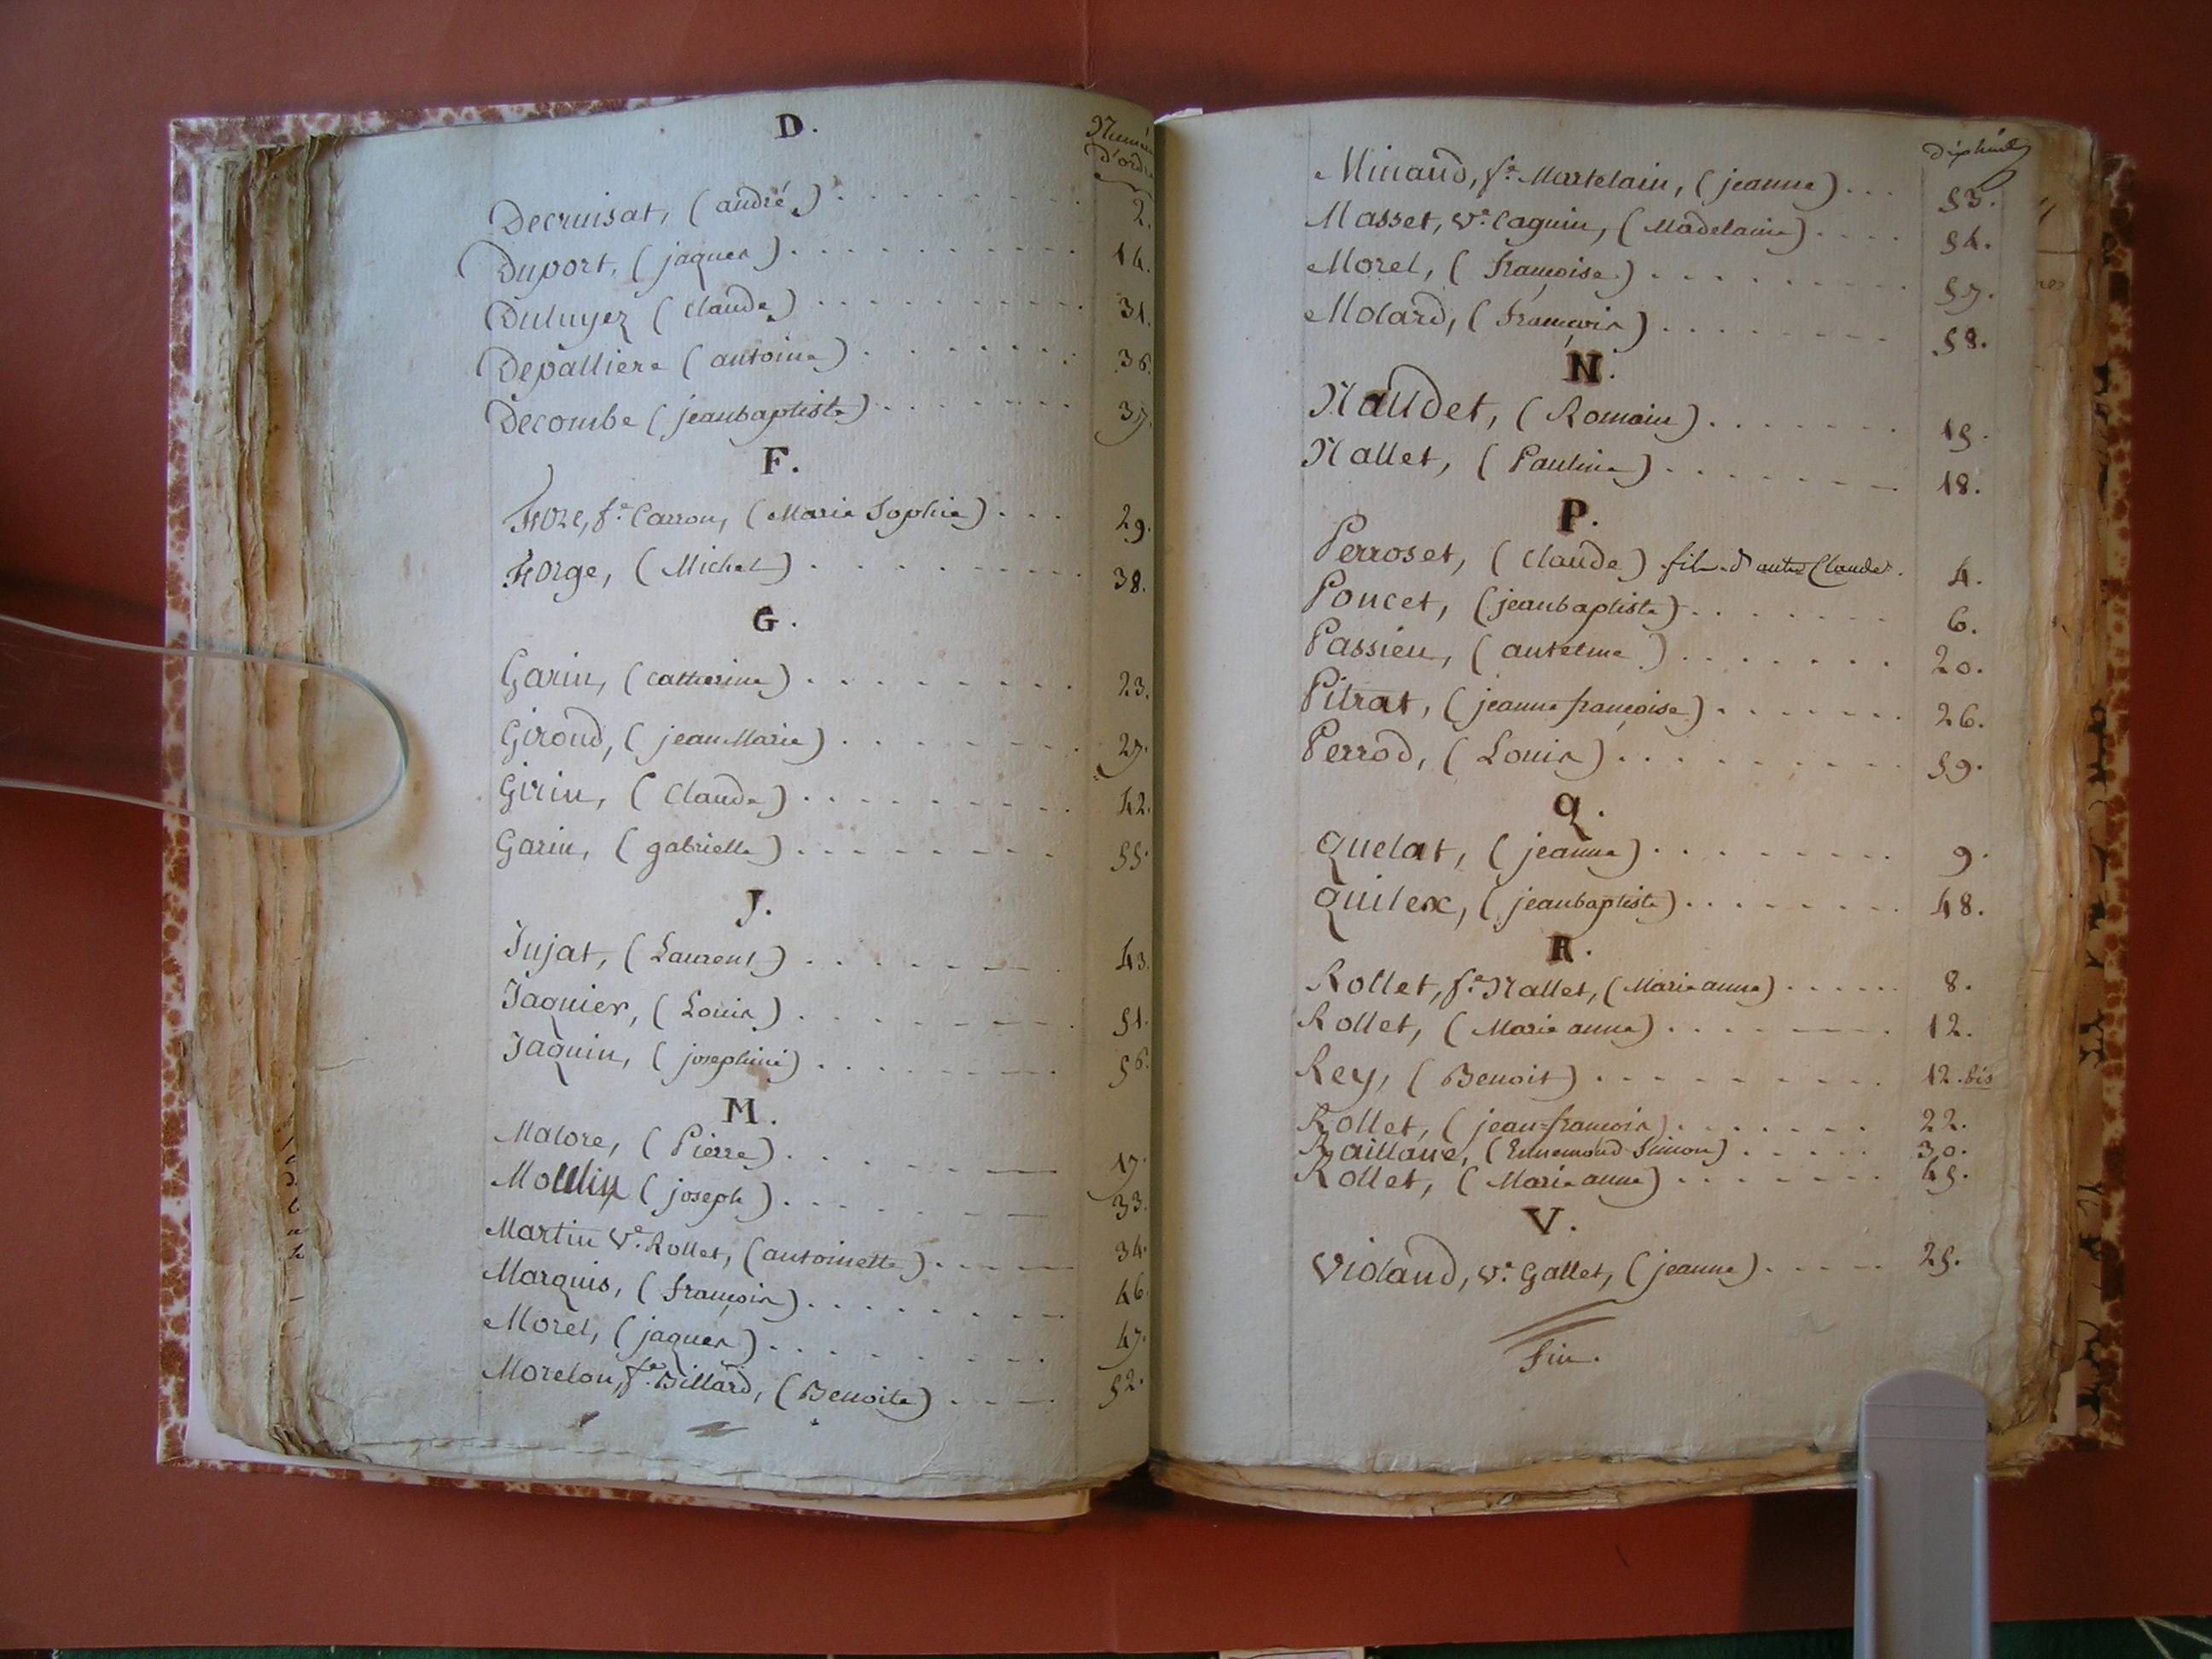 D.
Numéro
d'ordre
Decruisat, (andré) . . . . . . . . 2.
Duport, (jaques) . . . . . . . . . . 14.
Duluyez (Claude) . . . . . . . . . . 31.
Depalliere (antoine) . . . . . . . 36.
Decombe (jeanbaptiste) . . . . . . . 37.
F.
Fore, fe. Carron, (Marie Sophie) . . . 29.
Forge, (Michel) . . . . . . . . . 38.
G.
Garin, (catherine) . . . . . . . . . 23.
Giroud, (jean Marie) . . . . . . . . 27.
Girin, (Claude) . . . . . . . . . 42.
Garin, (gabrielle) . . . . . . . . 55.
J.
Jujat, (Laurent) . . . . . . . . 43.
Jaquier, (Louis) . . . . . . . . . 51.
Jaquin, (josephine) . . . . . . . . 56.
M.
Malore, (Pierre) . . . . . . . . 17.
Moulin (joseph) . . . . . . . 33.
Martin Ve. Rollet, (antoinette) . . . . . 34.
Marquis, (françois) . . . . . . . . 46.
Morel, (jaques) . . . . . . . . . 47.
Morelon, fe. Billard, (Benoite) . . . . 52.
Minand, fe. Martelain, (jeanne) . . . 53.
Masset, Ve. Caguin, (Madelaine) . . . . 54.
Morel, (françoise) . . . . . . . . . 57.
Molard, (françois) . . . . . . . . 58.
N.
Naudet, (Romain) . . . . . . . 15.
Nallet, (Pauline) . . . . . . . 18.
P.
Perroset, (Claude) fils d'autre Claude. 4.
Poncet, (jeanbaptiste) . . . . . . . 6.
Passieu, (antelme) . . . . . . . 20.
Pitrat, (jeanne françoise) . . . . . . . 26.
Perrod, (Louis) . . . . . . . . . 59.
Q.
Quelat, (jeanne) . . . . . . . . 9.
Quilex, (jeanbaptiste) . . . . . . . . 48.
R.
Rollet, fe. Nallet, (Marie anne) . . . . . . 8.
Rollet, (Marie anne) . . . . . . . . 12.
Rey, (Benoit) . . . . . . . . . 12. bis
Rollet, (jean=françois) . . . . . . . 22.
Raillane, (Ennemond Simon) . . . . . 30.
Rollet, (Marie anne) . . . . . . . 45.
V.
Violand, Ve. Gallet, (jeanne) . . . . . 25.
Fin.